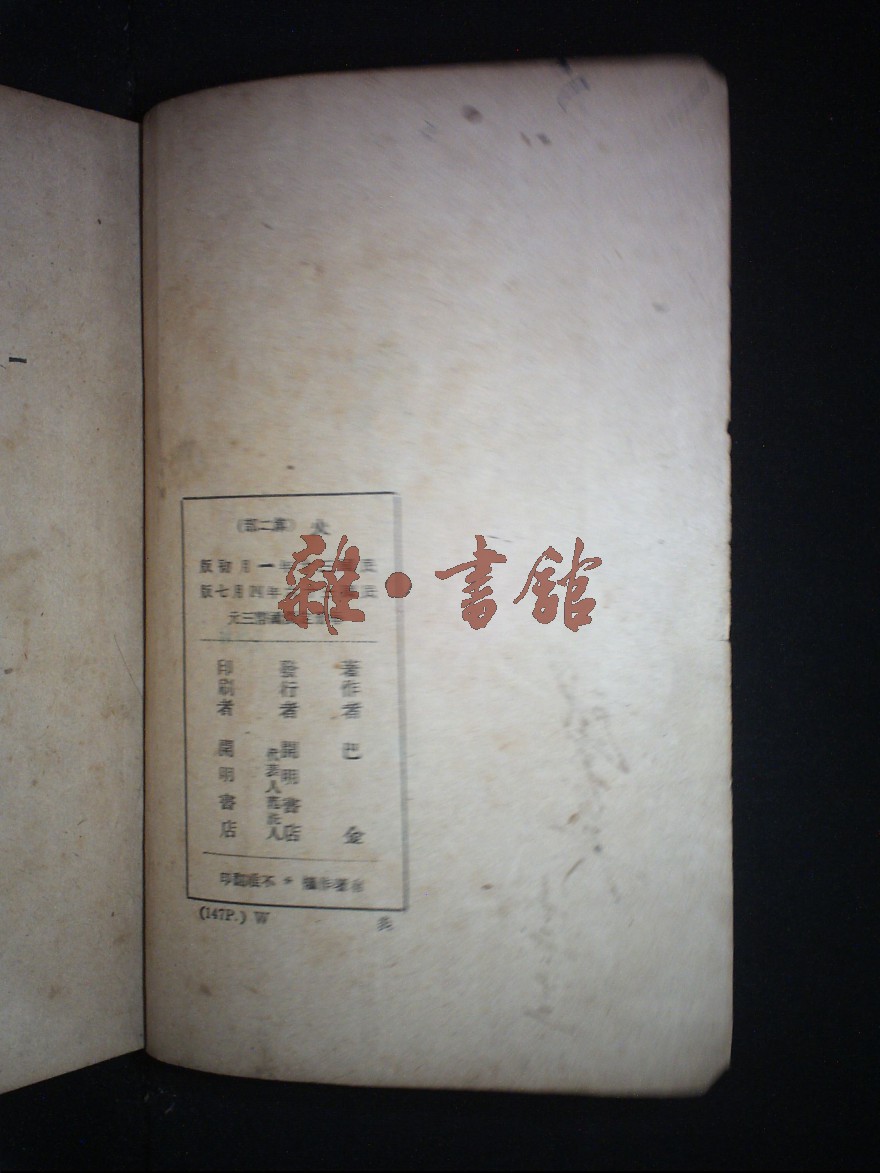 火 （第二部）
民國三 年一月初版
民國 年四月七版
國幣三元
著作者 巴金
發行者 開明書店
代表人范洗人
印刷者 開明書店
有著作權 * 不准翻印
(147P.) W
雜·書館